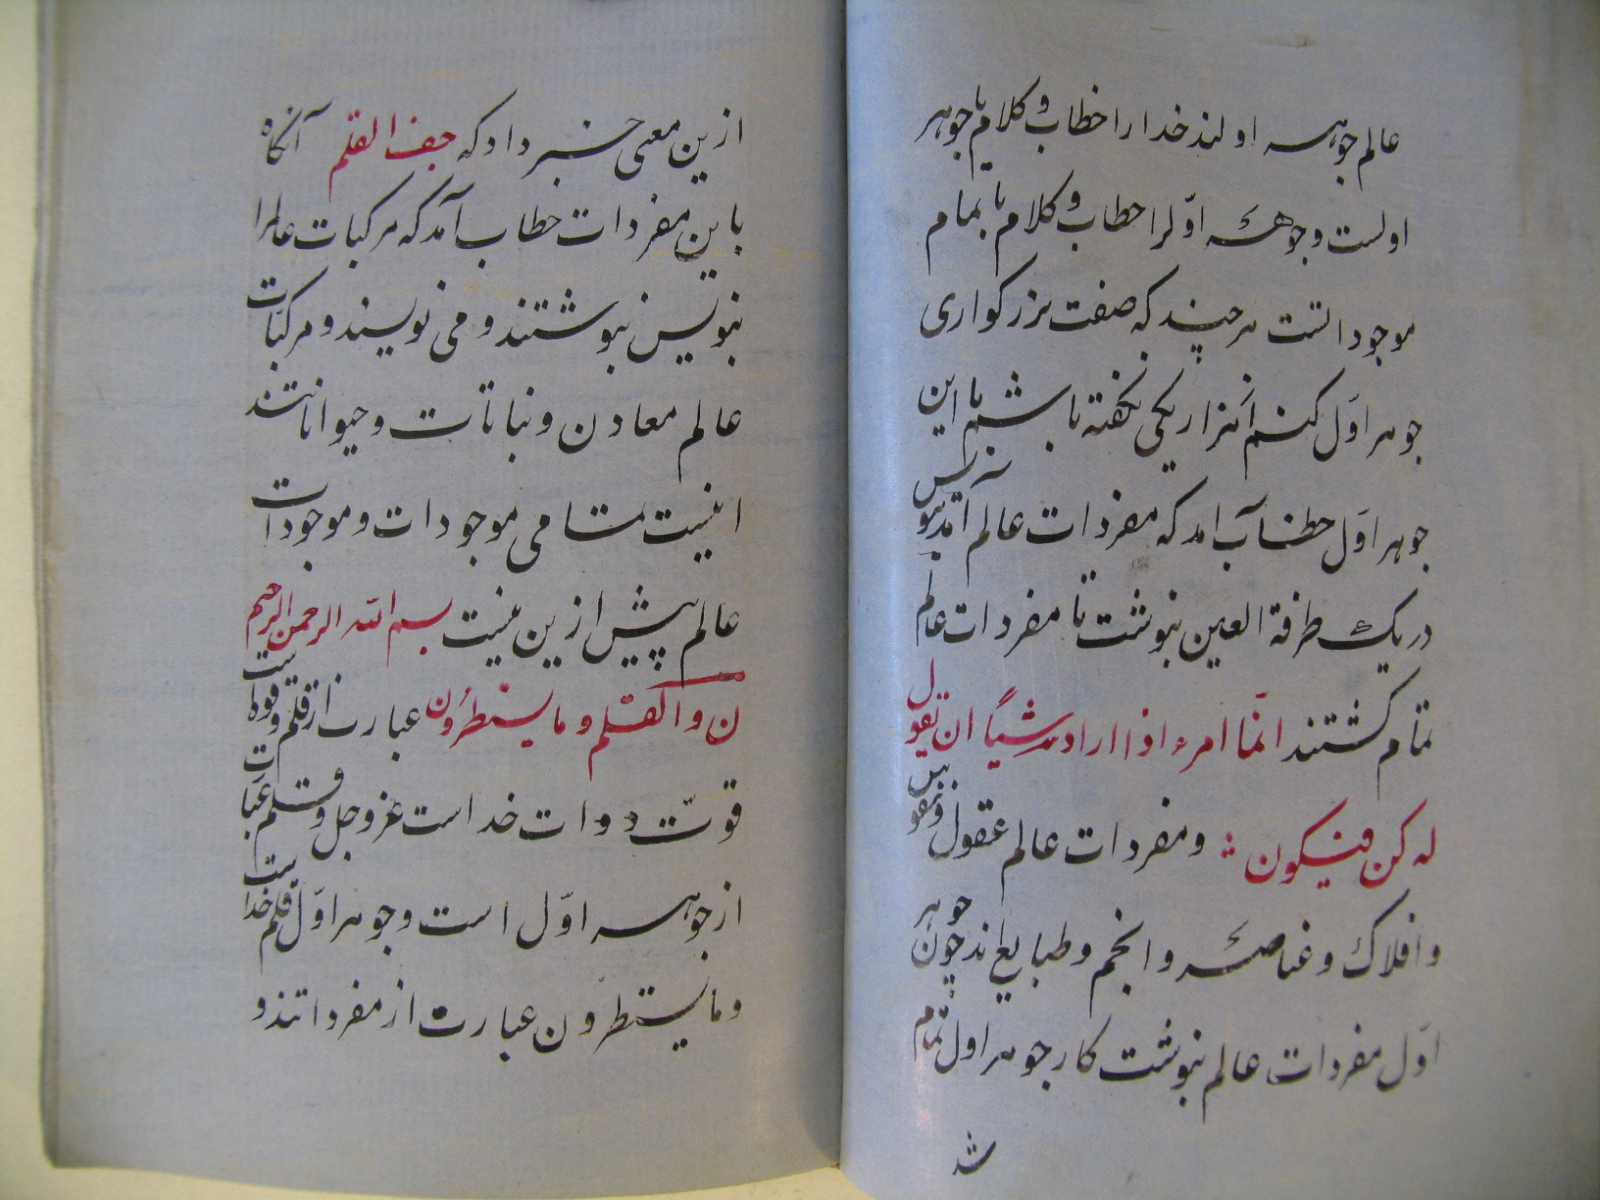 عالم جوهر اولند خدا را خطاب و کلام با جوهر
اولست و جوهر اوّل را خطاب و کلام با تمام
موجوداتست هر چند که صفت بزرکواری
جوهر اوّل کنم از هزار یکی نکفته باشم باین
جوهر اوّل خطاب آمد که مفردات عالم بنویس
در یک طرفة العین بنوشت تا مفردات عالم
تمام کشتند انّما امره اذا اراد شیأ ان تقول
له کن فیکون ؛ و مفردات عالم عقول و نفوس
و افلاک و عناصر و انجم و طبایع‌اند چون جوهر
اوّل مفردات عالم بنوشت کار جوهر اول تمام
شد
ازین معنی خبر داد که جف القلم آنکاه
باین مفردات خطاب آمد که مرکبات عالم را
بنویس بنوشتند و می نویسند و مرکبات
عالم معادن و نباتات و حیوانانتند
اینست تمامی موجودات و موجودات
عالم پیش ازین نیست بسم الله الرحمن الرحیم
ن و القلم و ما یسطرون عبارت از قلم و قوة است
قوّت دوات خداست عز و جل و قلم عبارت
از جوهر اوّل است و جوهر اوّل قلم خداست
و ما یسطرون عبارت از مفرداتند و